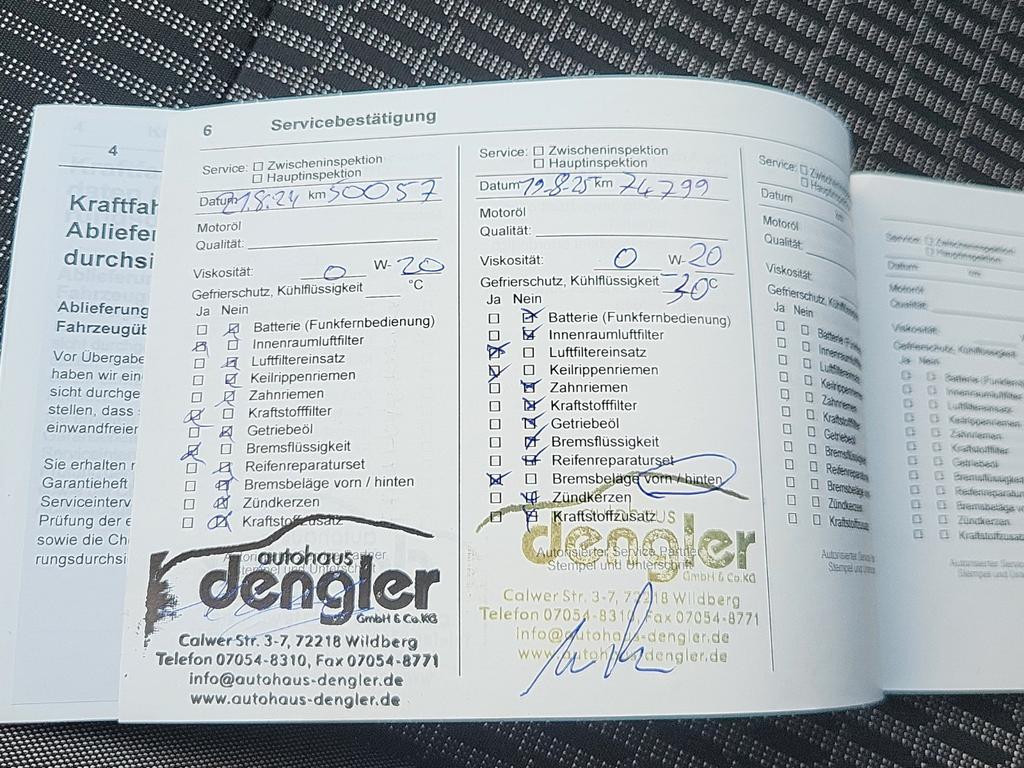 4
Kraftfah
Abliefer
durchsi
Ablieferung
Fahrzeugüb
Vor Übergabe
haben wir ein
sicht durchge
stellen, dass
einwandfreier
Sie erhalten
Garantieheft
Serviceinterv
Prüfung der e
sowie die Ch
rungsdurchsi
6 Servicebestätigung
Service: ☐ Zwischeninspektion
☐ Hauptinspektion
Datum 21.8.24 km 50057
Motoröl
Qualität:
Viskosität: 0 W- 20
Gefrierschutz, Kühlflüssigkeit °C
Ja Nein
Batterie (Funkfernbedienung)
Innenraumluftfilter
Luftfiltereinsatz
Keilrippenriemen
Zahnriemen
Kraftstofffilter
Getriebeöl
Bremsflüssigkeit
Reifenreparaturset
Bremsbeläge vorn / hinten
Zündkerzen
Kraftstoffzusatz
Stempel und Unterschrift
autohaus
dengler
GmbH & Co.KG
Calwer Str. 3-7, 72218 Wildberg
Telefon 07054-8310, Fax 07054-8771
info@autohaus-dengler.de
www.autohaus-dengler.de
Service: ☐ Zwischeninspektion
☐ Hauptinspektion
Datum 19.8.25 km 74799
Motoröl
Qualität:
Viskosität: 0 W- 20
Gefrierschutz, Kühlflüssigkeit -30°C
Ja Nein
Batterie (Funkfernbedienung)
Innenraumluftfilter
Luftfiltereinsatz
Keilrippenriemen
Zahnriemen
Kraftstofffilter
Getriebeöl
Bremsflüssigkeit
Reifenreparaturset
Bremsbeläge vorn / hinten
Zündkerzen
Kraftstoffzusatz
Autorisierter Service Partner
Stempel und Unterschrift
dengler
GmbH & Co.KG
Calwer Str. 3-7, 7
Telefon 07054-8310, Fax 07054-8771
info@autohaus-dengler.de
www.autohaus-dengler.de
Service: ☐ Zwischen
☐ Hauptinspektion
Datum km
Motoröl
Qualität:
Viskosität:
Gefrierschutz, Kühlflüssig
Ja Nein
Batterie (Funkfe
Innenraumluft
Luftfiltereinsatz
Keilrippenriem
Zahnriemen
Kraftstofffilter
Getriebeöl
Bremsflüssig
Reifenrepara
Bremsbeläge
Zündkerzen
Kraftstoffzus
Autorisierter Service
Stempel und Unters
Service: ☐ Zwischeninspektion
☐ Hauptinspektion
Datum km
Motoröl
Qualität:
Viskosität:
Gefrierschutz, Kühlflüssigkeit
Ja Nein
Batterie (Funkfern
Innenraumluftfilter
Luftfiltereinsatz
Keilrippenriemen
Zahnriemen
Kraftstofffilter
Getriebeöl
Bremsflüssigkeit
Reifenreparaturset
Bremsbeläge vorn
Zündkerzen
Kraftstoffzusatz
Autorisierter Service
Stempel und Unterschrift